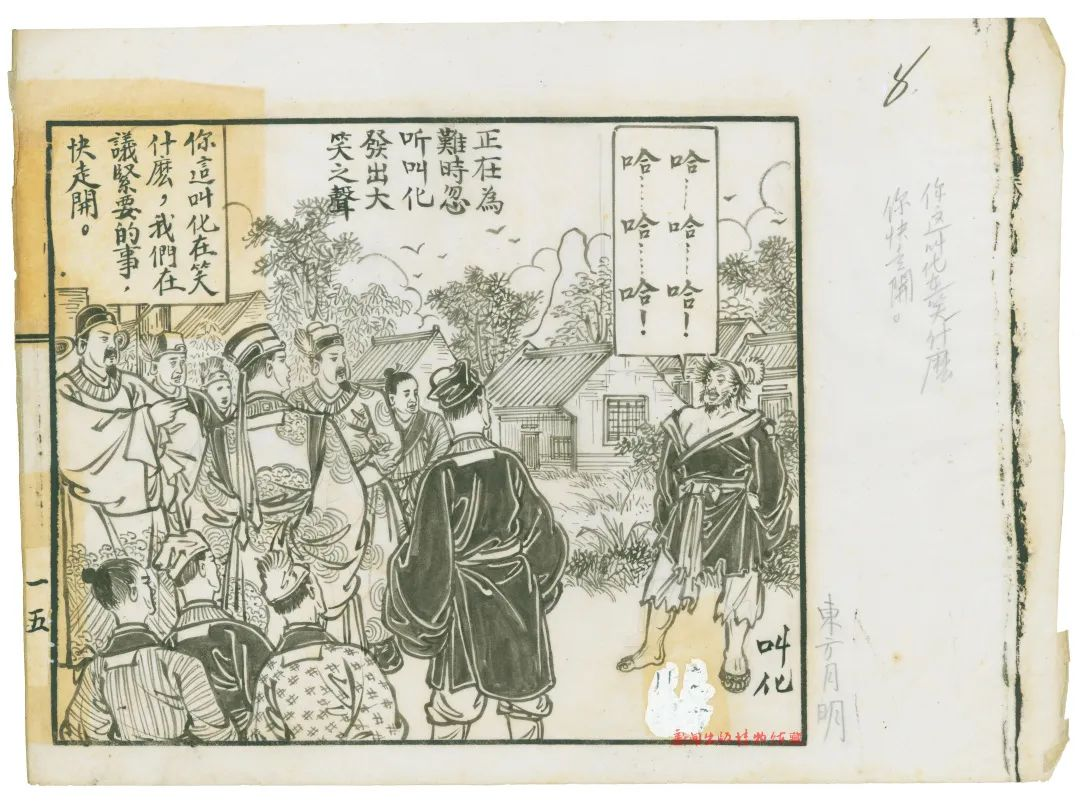 8
你这叫化在笑什麽
你快走開。
東方月明
哈……哈……哈！
哈……哈……哈！
正在為
難時忽
听叫化
發出大
笑之聲
你這叫化在笑
什麽，我們在
議緊要的事，
快走開。
叫化
一五
新闻出版博物馆藏